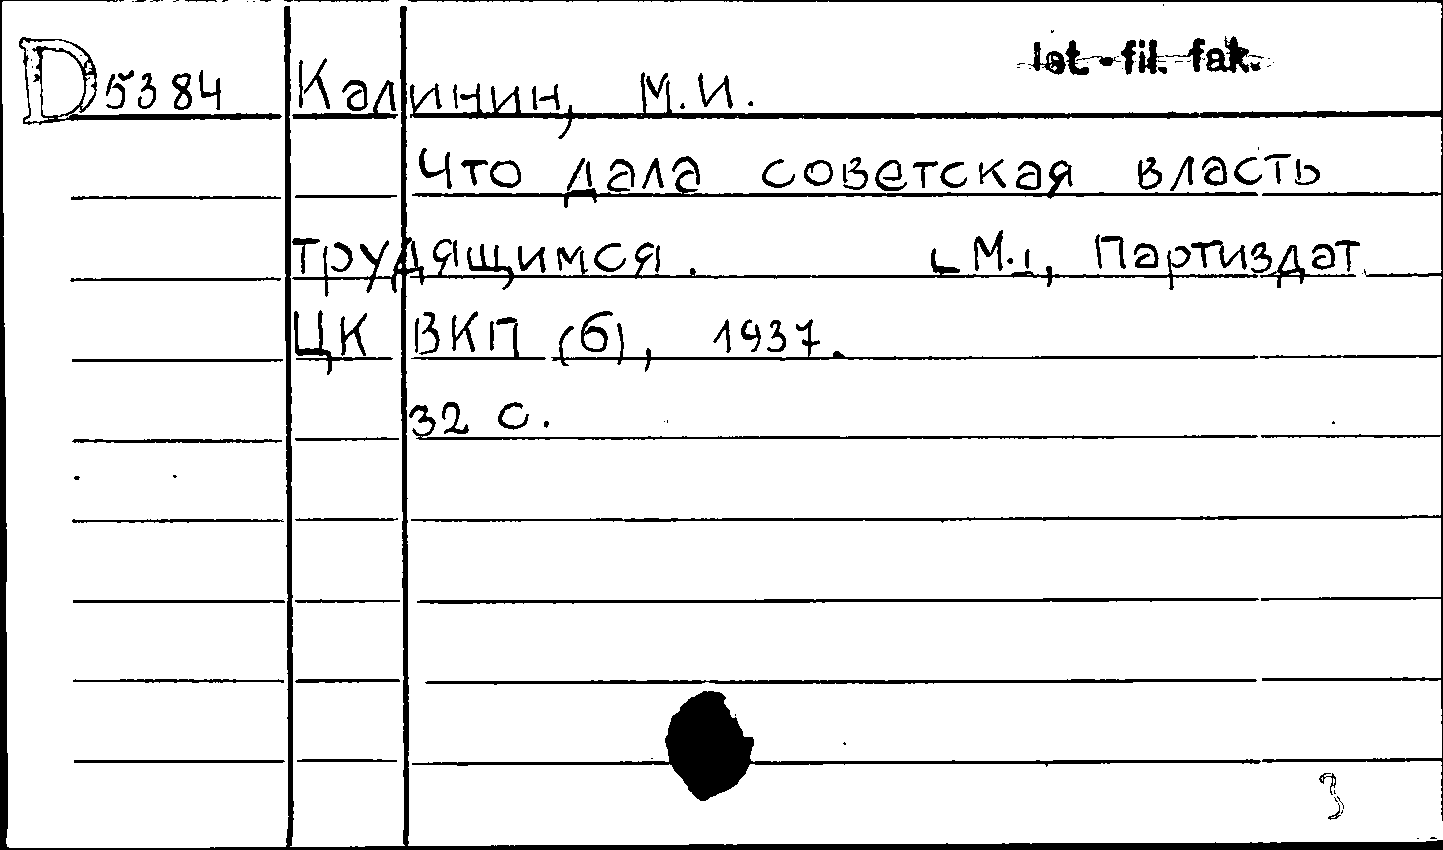 Ist.-fil. fak.
D5384 Калинин, М.И.
Что дала советская власть
трудящимся. [М.], Партиздат
ЦК ВКП (б), 1937.
32 с.
3